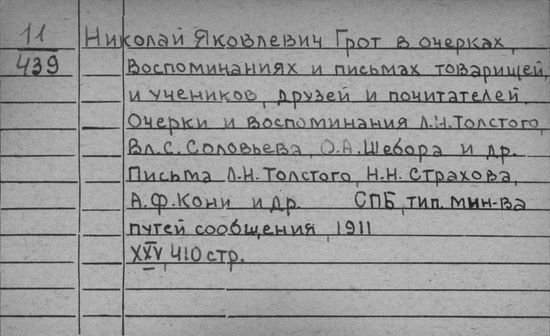 11
439
Николай Яковлевич Грот в очерках,
воспоминаниях и письмах товарищей,
и учеников, друзей и почитателей.
Очерки и воспоминания Л.Н.Толстого,
Вл.С.Соловьева, О.А.Шебора и др.
Письма Л.Н.Толстого, Н.Н.Страхова,
А.Ф.Кони и др. СПБ, тип. мин-ва
путей сообщения, 1911
XXV, 410 стр.